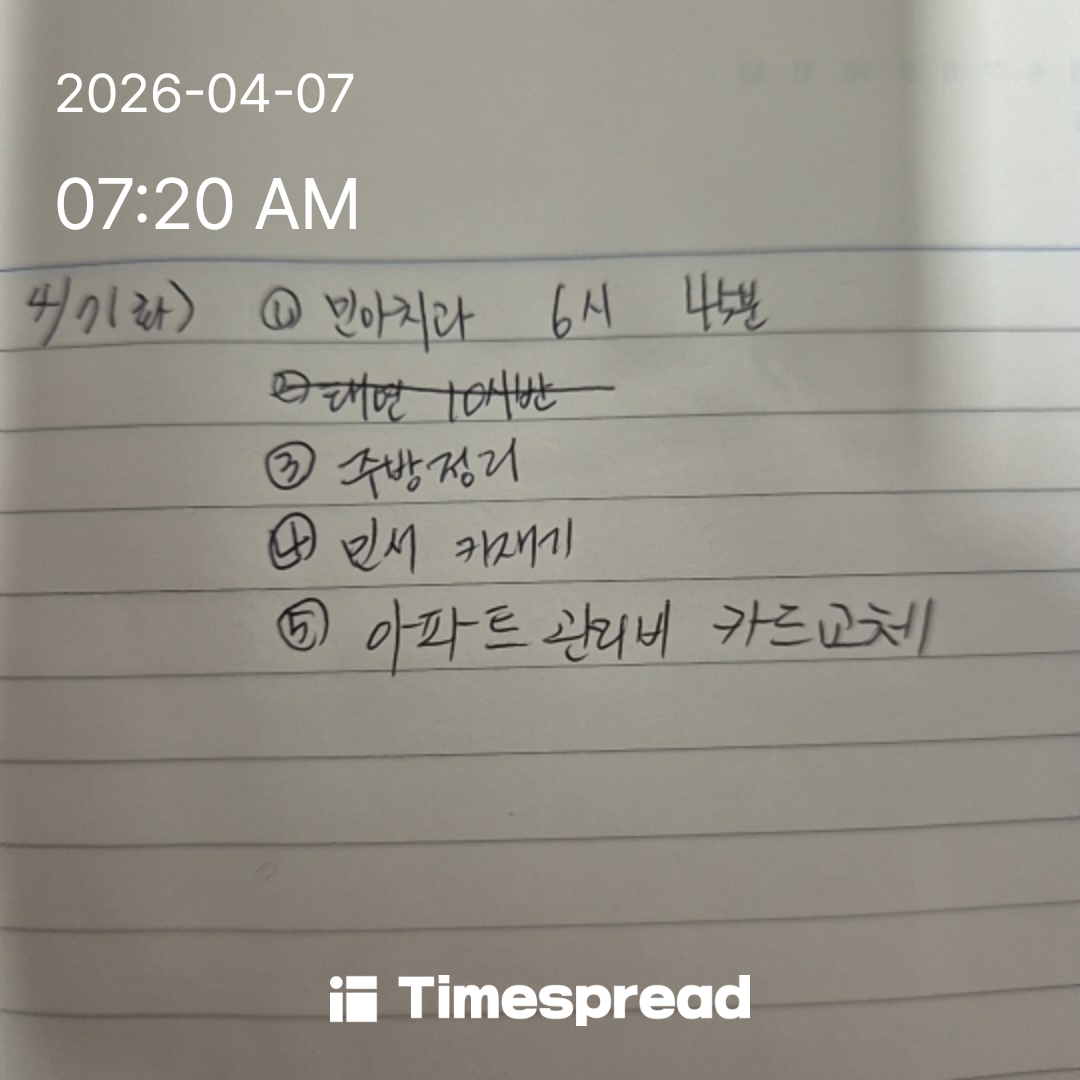 2026-04-07
07:20 AM
4/7(화) ① 민아치과 6시 45분
② 태면 10시반
③ 주방정리
④ 민서 키재기
⑤ 아파트 관리비 카드교체
Timespread